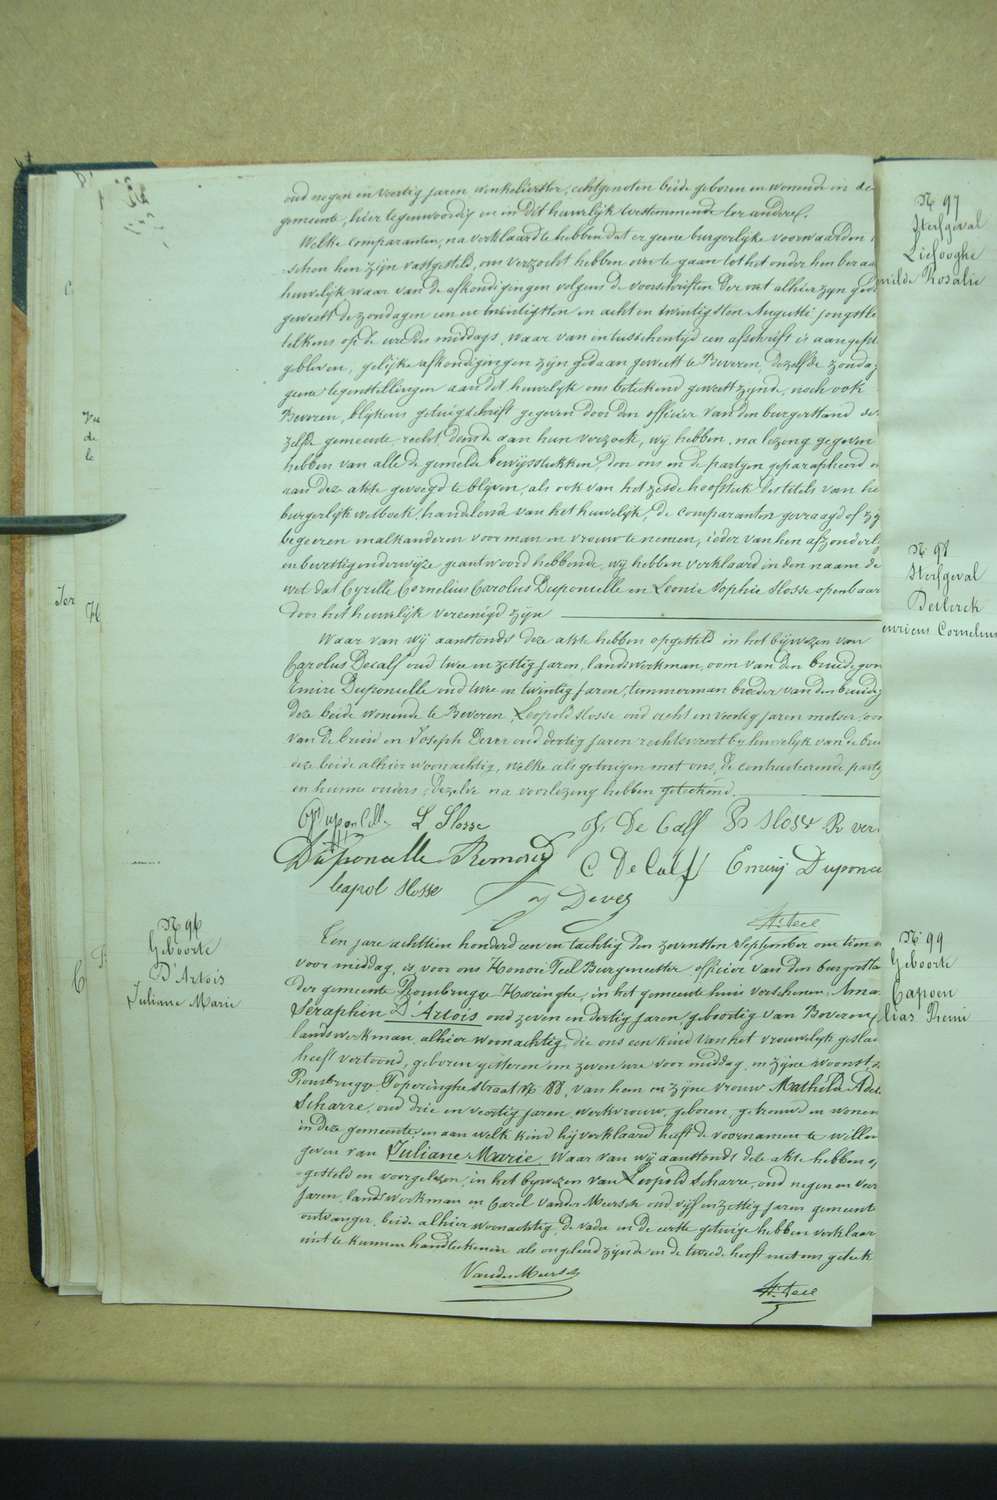 oud negen en veertig jaren winkelierster, echtgenoten beide geboren en wonende in de
gemeente, hier tegenwoordig en in dit huwelijk toestemmende ter anderer.
Welke comparanten, na verklaard te hebben dat er geene burgerlijke voorwaarden
schen hen zijn vastgesteld, ons verzocht hebben over te gaan tot het onder hen beraa
huwelijk waar van de afkondigingen volgens de voorschriften der wet alhier zijn geda
geweest de zondagen een en twintigsten en acht en twintigsten Augusti jongstle
telkens op de ure des middags, waar van intusschentijd een afschrift is aangepla
gebleven, gelijke afkondigingen zijn gedaan geweest te Beveren, dezelfde zondag
geene tegenstellingen aan dit huwelijk ons betekend geweest zijnde, noch ook
Beveren, blijkens getuigschrift gegeven door den officier van den burgerstand der
zelfde gemeente, recht doende aan hun verzoek, wij hebben, na lezing gegeven
hebben van alle de gemelde bewijsstukken, door ons en de partijen geparapheerd
aan deze akte gevoegd te blijven, als ook van het zesde hoofdstuk des titels van he
burgerlijk wetboek, handelende van het huwelijk, de comparanten gevraagd of zij
begeeren malkanderen voor man en vrouw te nemen, ieder van hen afzonderlij
en bevestigenderwijze geantwoord hebbende, wij hebben verklaard in den naam de
wet dat Cyrille Cornelius Carolus Duponcelle en Leonie Sophie Slosse openbaar
door het huwelijk vereenigd zijn
Waar van wij aanstonds deze akte hebben opgesteld in het bijwezen van
Carolus Decalf oud twee en zestig jaren, landswerkman, oom van den bruidegom
Emiri Duponcelle oud twee en twintig jaren, timmerman broeder van den bruideg
deze beide wonende te Beveren, Leopold Slosse oud acht en veertig jaren metser, oom
van de bruid en Joseph Devez oud dertig jaren rechtszweer by huwelijk van de brui
deze beide alhier woonachtig, welke als getuigen met ons, de contracteerende partij
en hunne ouders, dezelve na voorlezing hebben geteekend.
C Duponcelle L Slosse J. De Calf B Slosse R ver
Duponcelle Remory C De Calf Emirij Duponce
leopol Slosse J Devez
H. Teel
N 96
Geboorte
D'Artois
Juliane Marie
Een jare achttien honderd een en tachtig den zevensten September om tien
voor middag, is voor ons Honoré Teel Burgemeester officier van den burgersta
der gemeente Rousbrugge-Haringhe, in het gemeente huis verschenen, Ama
Seraphin D'Artois oud zeven en dertig jaren, geboortig van Beveren,
landswerkman, alhier woonachtig, die ons een kind van het vrouwelijk geslac
heeft vertoond, geboren gisteren om zeven ure voor middag, in zijne woonst,
Rousbrugge Poperinghestraat N 88, van hem en zijne vrouw Mathilda Adel
Scharre, oud drie en veertig jaren, werkvrouw, geboren, getrouwd en wonen
in deze gemeente, en aan welk kind hij verklaard heeft de voornamen te willen
geven van Juliane Marie. Waar van wij aanstonds deze akte hebben op
gesteld en voorgelezen, in het bijwezen van Leopold Scharre, oud negen en veer
jaren, landswerkman en Carel Vander Meersch oud vijf en zestig jaren gemeent
ontvanger, beide alhier woonachtig, de vader en de eerste getuige hebben verklaar
niet te kunnen handteekenen als ongeleerd zijnde en de tweede heeft met ons geteek
VanderMeersch
H. Teel
N 97
Sterfgeval
Liefooghe
milde Rosalie
N 98
Sterfgeval
Deklerck
enricus Cornelius
N 99
Geboorte
Capoen
lias Remi